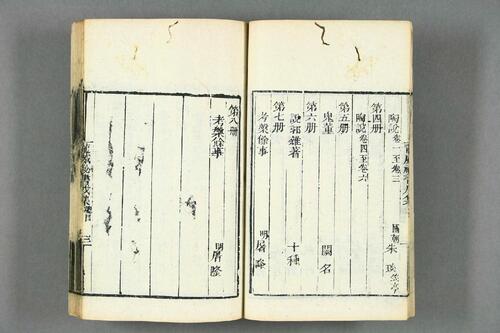 陶說卷一至卷三 國朝朱琰
第四册
陶說卷四至卷六
第五册
鬼董 闕名
第六册
說郛雜著 十種
第七册
考槃餘事 明屠隆
第八册
考槃餘事 明屠隆